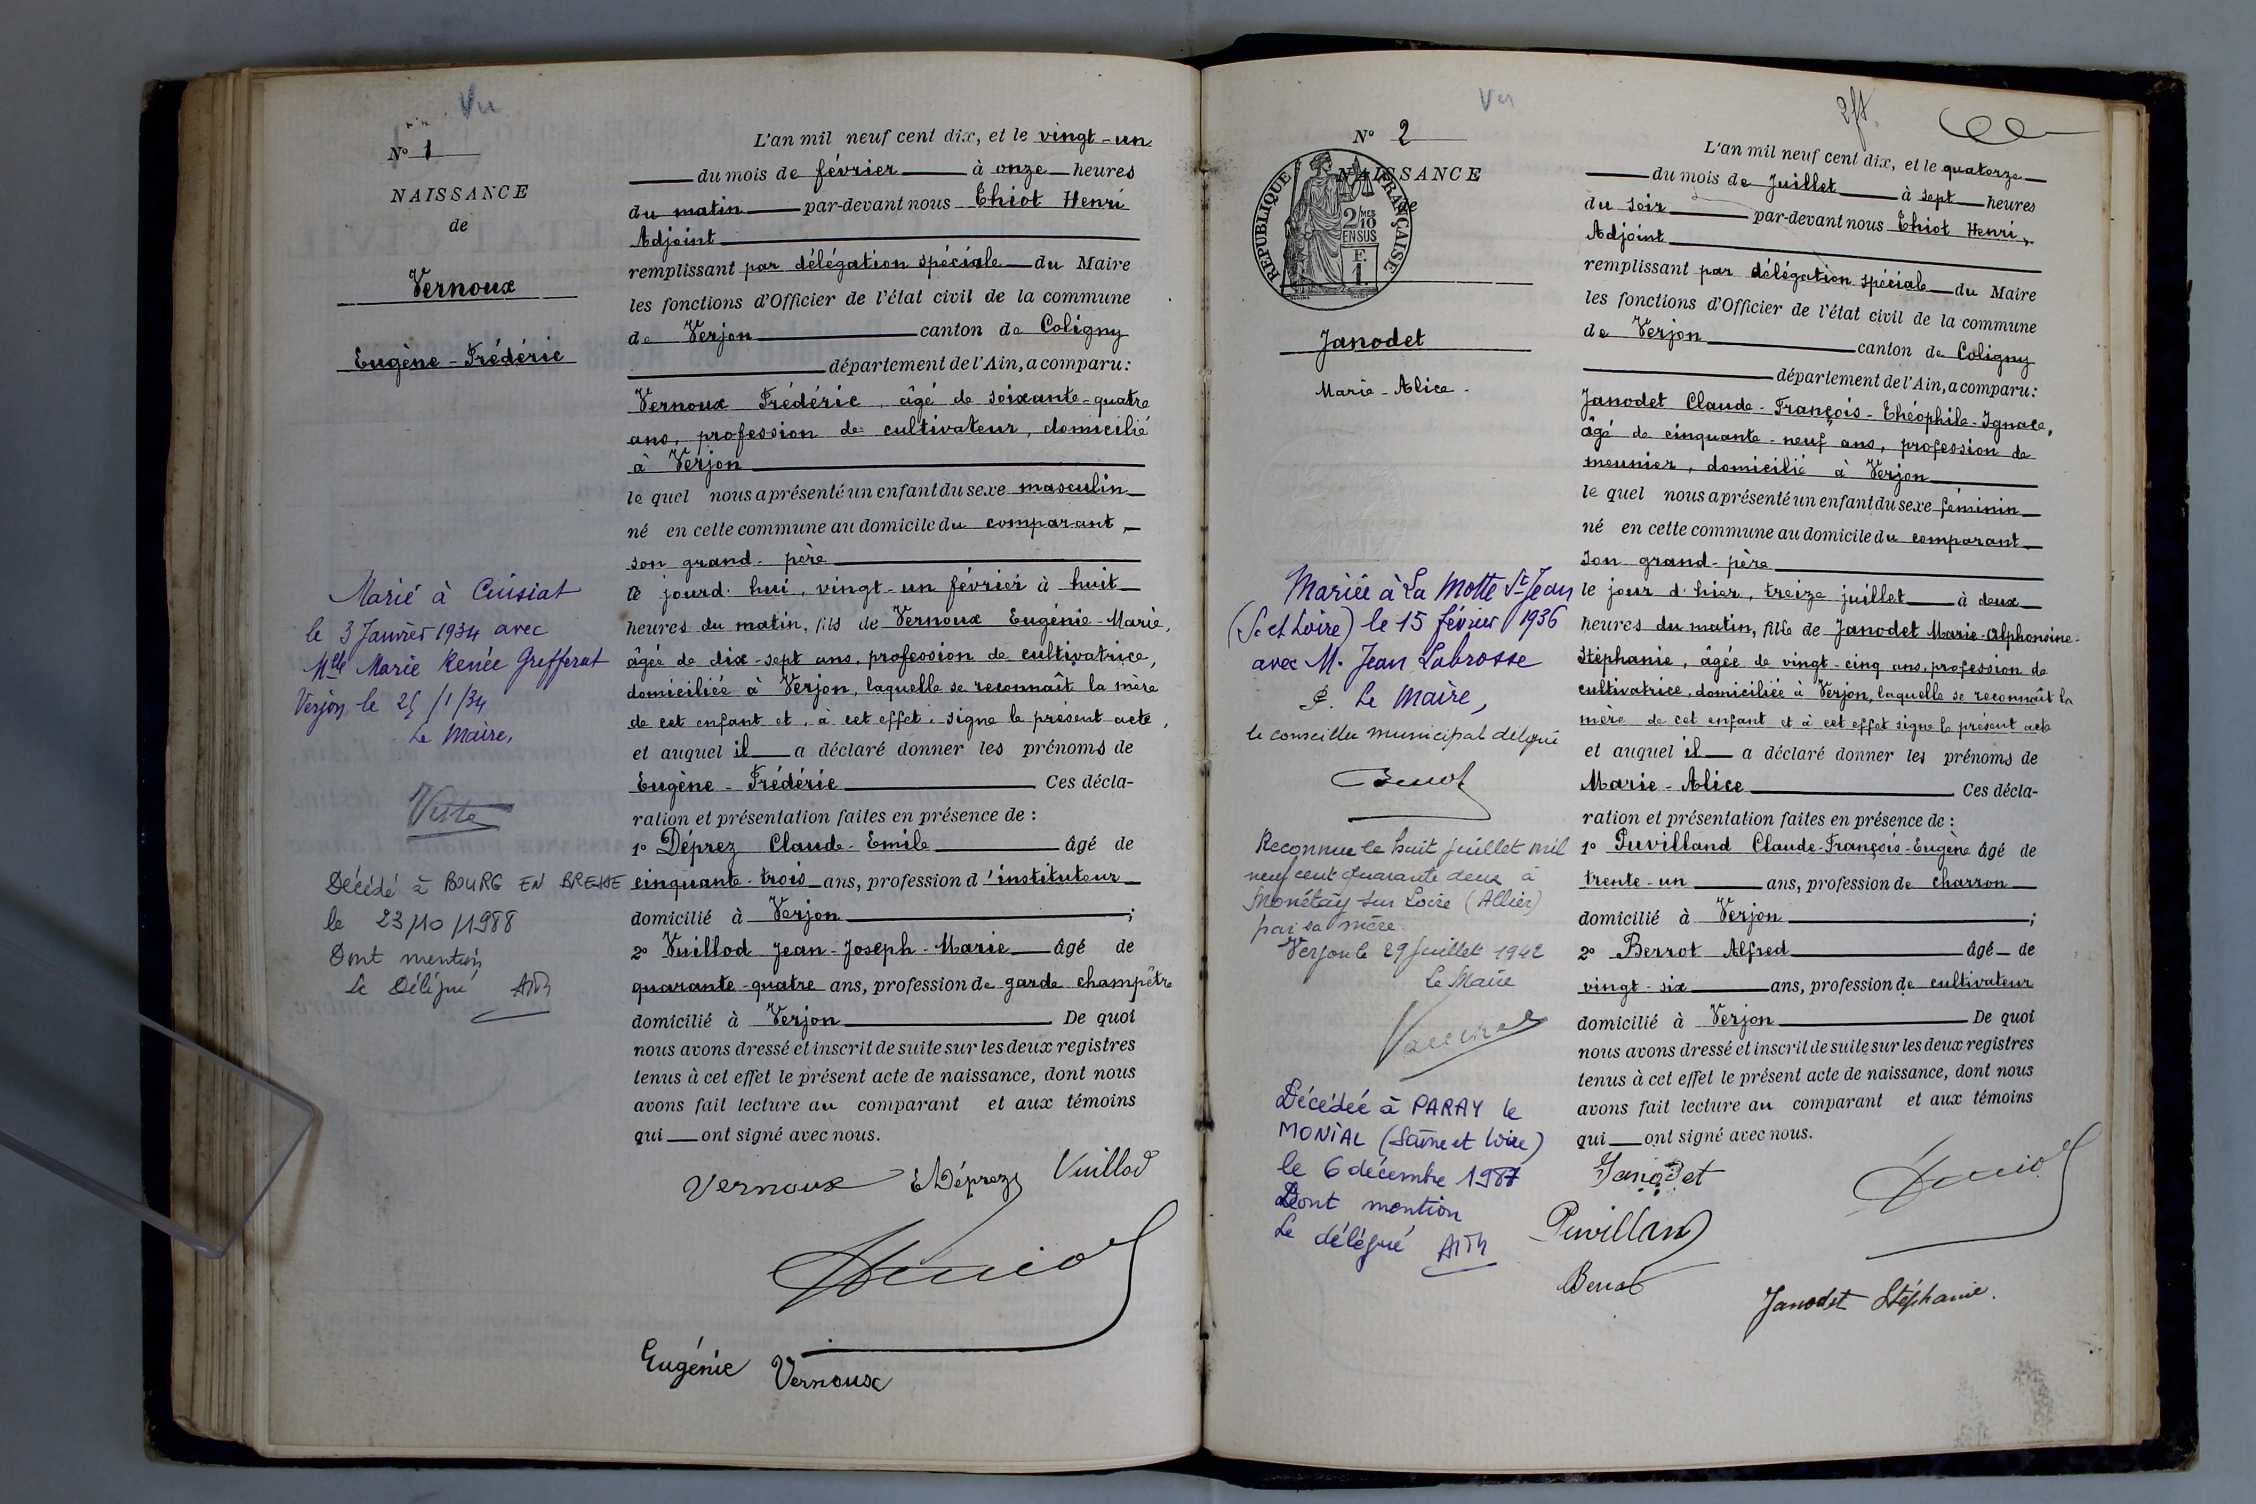 Vu
N° 1
NAISSANCE
de
Vernoux
Eugène - Frédéric
Marié à Cuisiat
le 3 Janvier 1934 avec
Melle Marie Renée Grefferat
Verjon le 25/1/34
Le Maire,
Décédé à BOURG EN BRESSE
le 23/10/1988
Dont mention
Le Délégué
L'an mil neuf cent dix, et le vingt-un
du mois de février à onze heures
du matin par-devant nous Thiot Henri
Adjoint
remplissant par délégation spéciale du Maire
les fonctions d'Officier de l'état civil de la commune
de Verjon canton de Coligny
département de l'Ain, a comparu:
Vernoux Frédéric, âgé de soixante-quatre
ans, profession de cultivateur, domicilié
à Verjon
le quel nous a présenté un enfant du sexe masculin
né en cette commune au domicile du comparant,
son grand-père
ce jourd'hui, vingt-un février à huit
heures du matin, fils de Vernoux Eugénie-Marie,
âgée de dix-sept ans, profession de cultivatrice,
domiciliée à Verjon, laquelle se reconnaît la mère
de cet enfant et, à cet effet, signe le présent acte,
et auquel il a déclaré donner les prénoms de
Eugène - Frédéric Ces décla-
ration et présentation faites en présence de :
1° Déprez Claude-Emile âgé de
cinquante-trois ans, profession d'instituteur
domicilié à Verjon ;
2° Vuillod Jean-Joseph-Marie âgé de
quarante-quatre ans, profession de garde champêtre
domicilié à Verjon De quoi
nous avons dressé et inscrit de suite sur les deux registres
tenus à cet effet le présent acte de naissance, dont nous
avons fait lecture au comparant et aux témoins
qui ont signé avec nous.
Vernoux E Déprez Vuillod
Eugénie Vernoux
N° 2
NAISSANCE
de
RÉPUBLIQUE FRANÇAISE
2/10 MES
EN SUS
F.
1.
Janodet
Marie - Alice -
Mariée à La Motte St-Jean
(S. et Loire) le 15 février 1936
avec M. Jean Labrosse
P. Le Maire,
le conseiller municipal délégué
Reconnue le huit juillet mil
neuf cent quarante deux à
Monétay sur Loire (Allier)
par sa mère
Verjon le 29 Juillet 1942
Le Maire
Décédée à PARAY le
MONIAL (Saône et Loire)
le 6 décembre 1987
Dont mention
Le délégué
L'an mil neuf cent dix, et le quatorze
du mois de Juillet à sept heures
du soir par-devant nous Thiot Henri,
Adjoint
remplissant par délégation spéciale du Maire
les fonctions d'Officier de l'état civil de la commune
de Verjon canton de Coligny
département de l'Ain, a comparu:
Janodet Claude-François-Théophile-Ignace,
âgé de cinquante-neuf ans, profession de
meunier, domicilié à Verjon
le quel nous a présenté un enfant du sexe féminin
né en cette commune au domicile du comparant
son grand-père
le jour d'hier, treize juillet à deux
heures du matin, fille de Janodet Marie-Alphonsine-
Stéphanie, âgée de vingt-cinq ans, profession de
cultivatrice, domiciliée à Verjon, laquelle se reconnaît la
mère de cet enfant et à cet effet signe le présent acte
et auquel il a déclaré donner les prénoms de
Marie - Alice Ces décla-
ration et présentation faites en présence de :
1° Puvilland Claude-François-Eugène âgé de
trente-un ans, profession de charron
domicilié à Verjon ;
2° Berrot Alfred âgé de
vingt-six ans, profession de cultivateur
domicilié à Verjon De quoi
nous avons dressé et inscrit de suite sur les deux registres
tenus à cet effet le présent acte de naissance, dont nous
avons fait lecture au comparant et aux témoins
qui ont signé avec nous.
Janodet
Puvilland
Janodet Stéphanie.